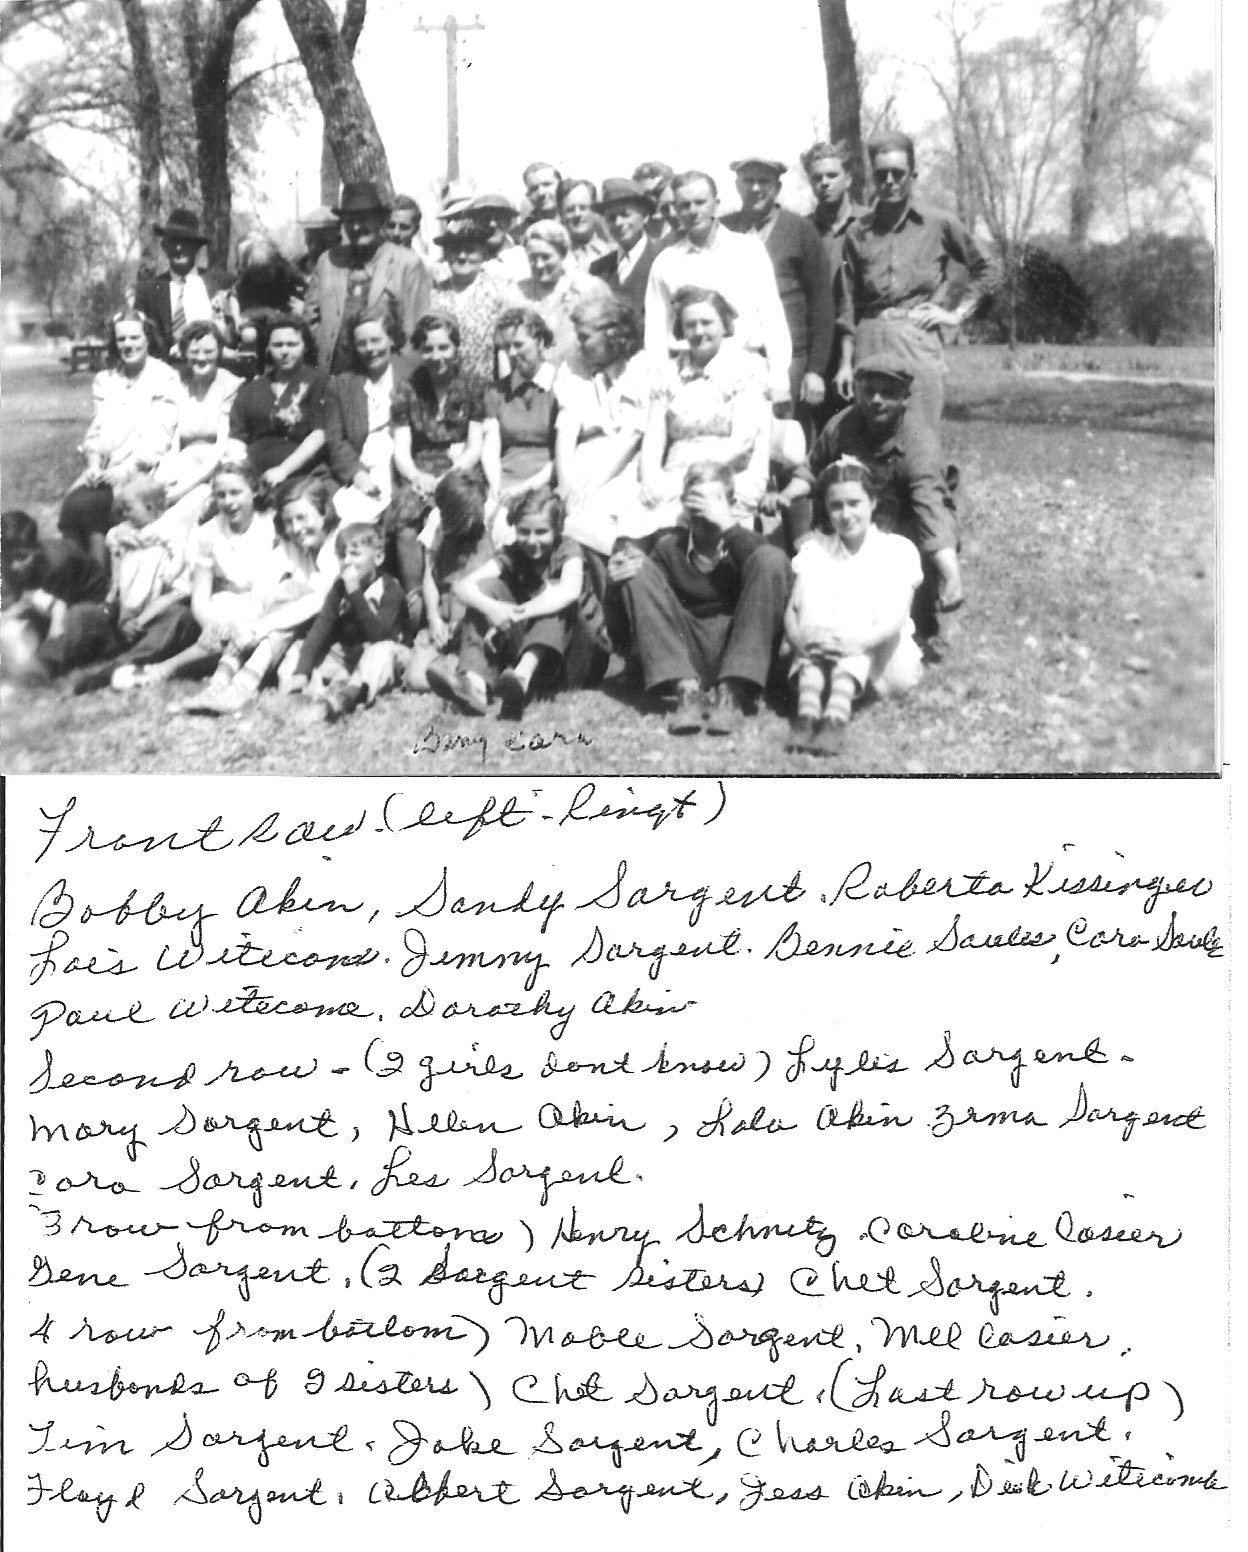 Beny Cara
Front row (left - Ringt)
Bobby Akin, Sandy Sargent. Roberta Kissinger
Lois Witicome. Jimmy Sargent. Bennie Saules, Cara Saule
Paul Witicome. Dorothy Akin
Second row - (2 girls dont know) Lyles Sargent -
Mary Sargent, Hellen Akin, Lola Akin Irma Sargent
Cora Sargent, Les Sargent.
3 row from bottom) Henry Schmitz. Caroline Casier
Gene Sargent, (2 Sargent sisters) Chet Sargent.
4 row from bottom) Mable Sargent, Mell Casier,
husbands of 2 sisters) Chet Sargent, (Last row up)
Tim Sargent. Jake Sargent, Charles Sargent.
Floyd Sargent, Albert Sargent, Jess Akin, Dick Witicomb